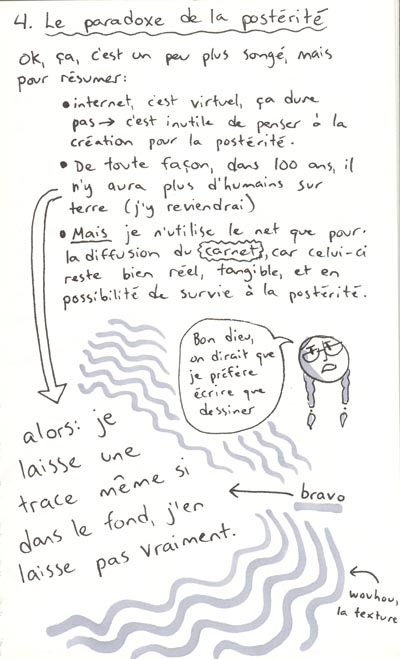 4. Le paradoxe de la postérité
OK, ça, c'est un peu plus songé, mais
pour résumer:
• internet, c'est virtuel, ça dure
pas → c'est inutile de penser à la
création pour la postérité.
• De toute façon, dans 100 ans, il
n'y aura plus d'humains sur
terre (j'y reviendrai)
• Mais je n'utilise le net que pour
la diffusion du carnet, car celui-ci
reste bien réel, tangible, et en
possibilité de survie à la postérité.
Bon dieu,
on dirait que
je préfère
écrire que
dessiner
alors: je
laisse une
trace même si
dans le fond, j'en
laisse pas vraiment.
← bravo
wouhou,
la texture